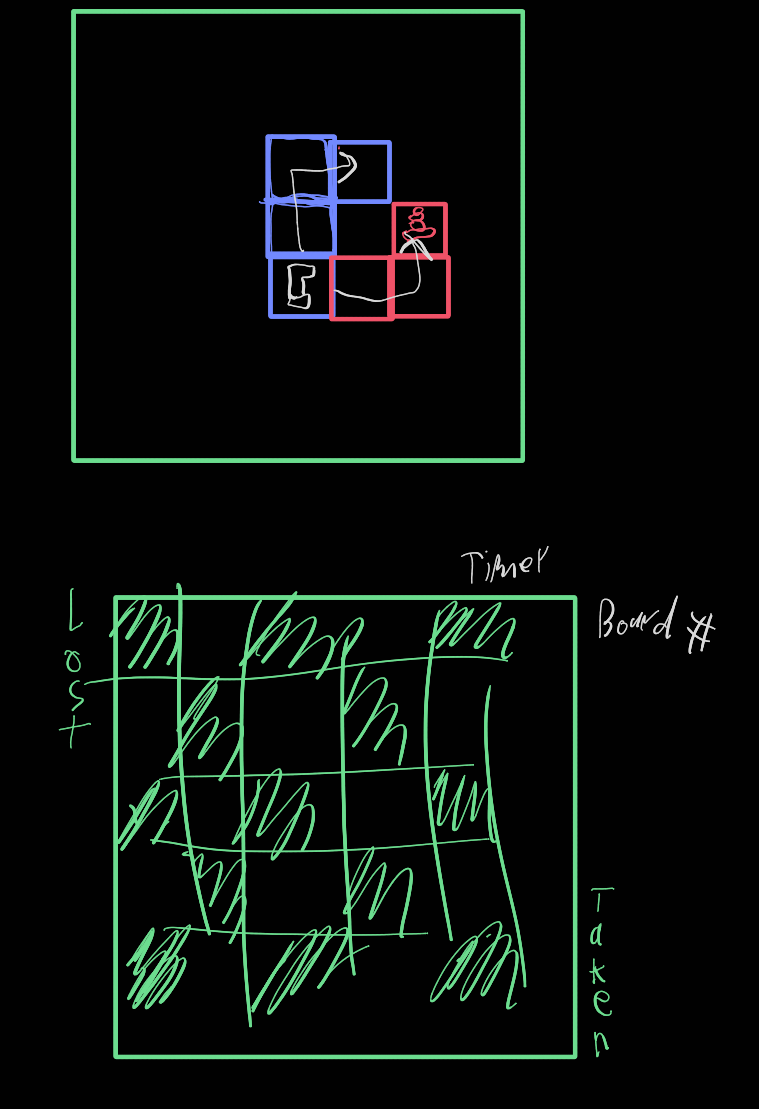 Timer
Board #
Lost
Taken